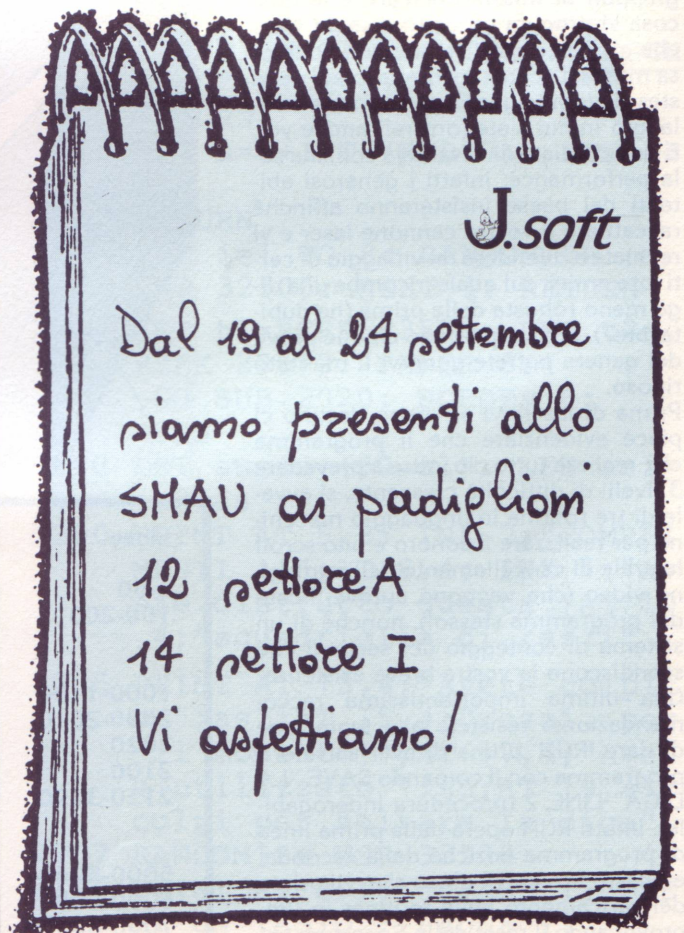 J.soft
Dal 19 al 24 settembre
siamo presenti allo
SMAU ai padiglioni
12 settore A
14 settore I
Vi aspettiamo!